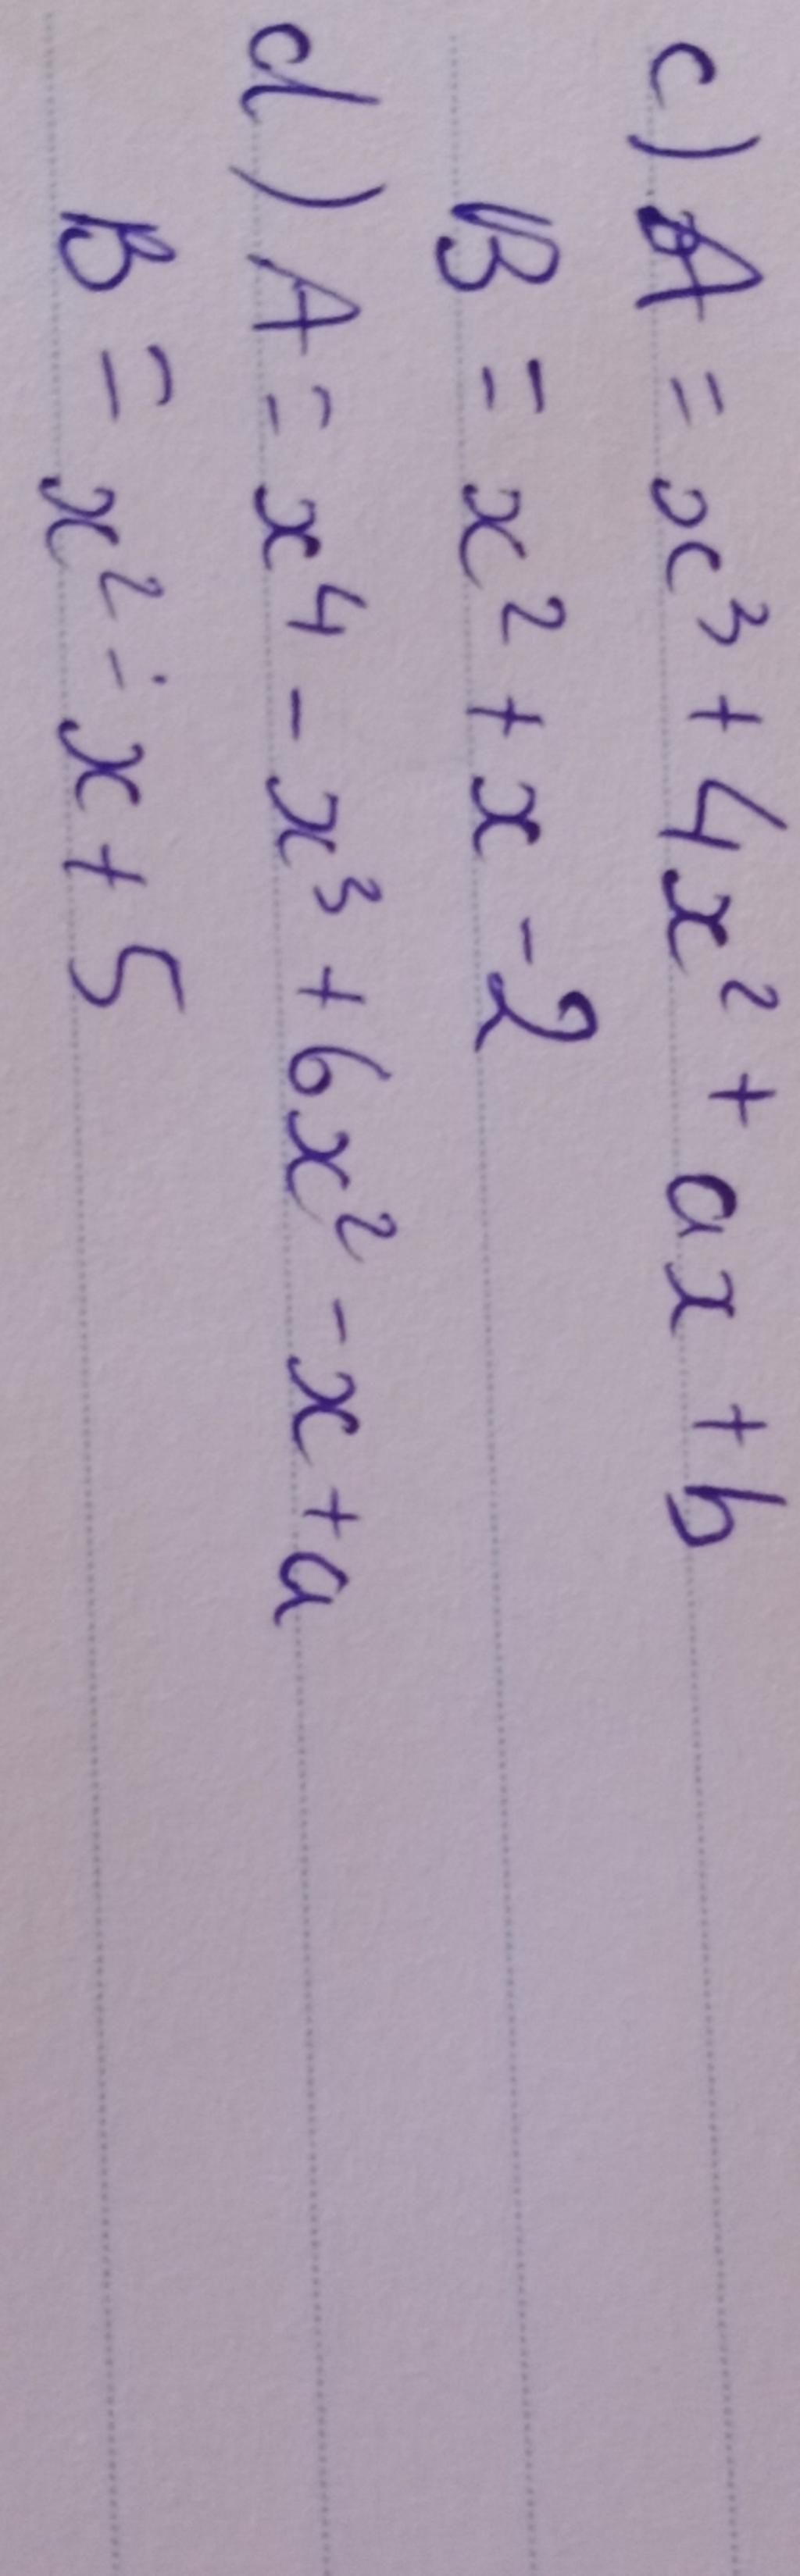 c) A = x³ + 4x² + ax + b
B = x² + x - 2
d) A = x⁴ - x³ + 6x² - x + a
B = x² - x + 5